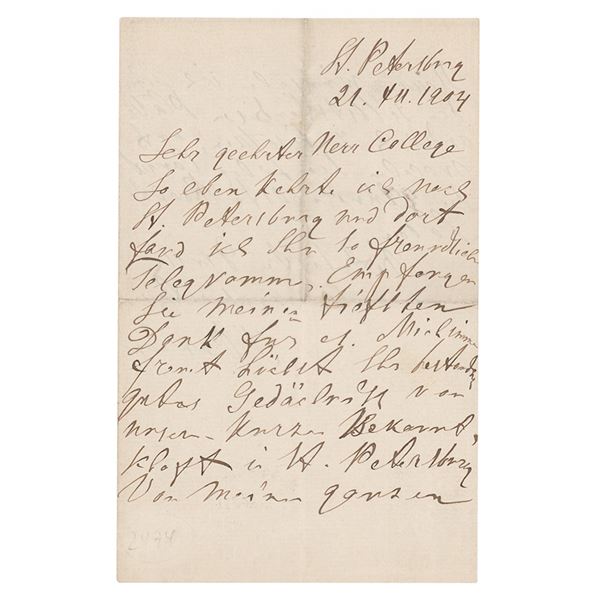 St. Petersburg
21. XII. 1904
Sehr geehrter Herr College
So eben kehrte ich nach
St. Petersburg und dort
fand ich Ihr so freundlich
Telegramm. Empfangen
Sie meinen tiefsten
Dank für es. Mich
freut höchst Ihr beständig
gutes Gedächtniß von
unser kurzen Bekannt
schaft in St. Petersburg
Von meinen ganzen
2474